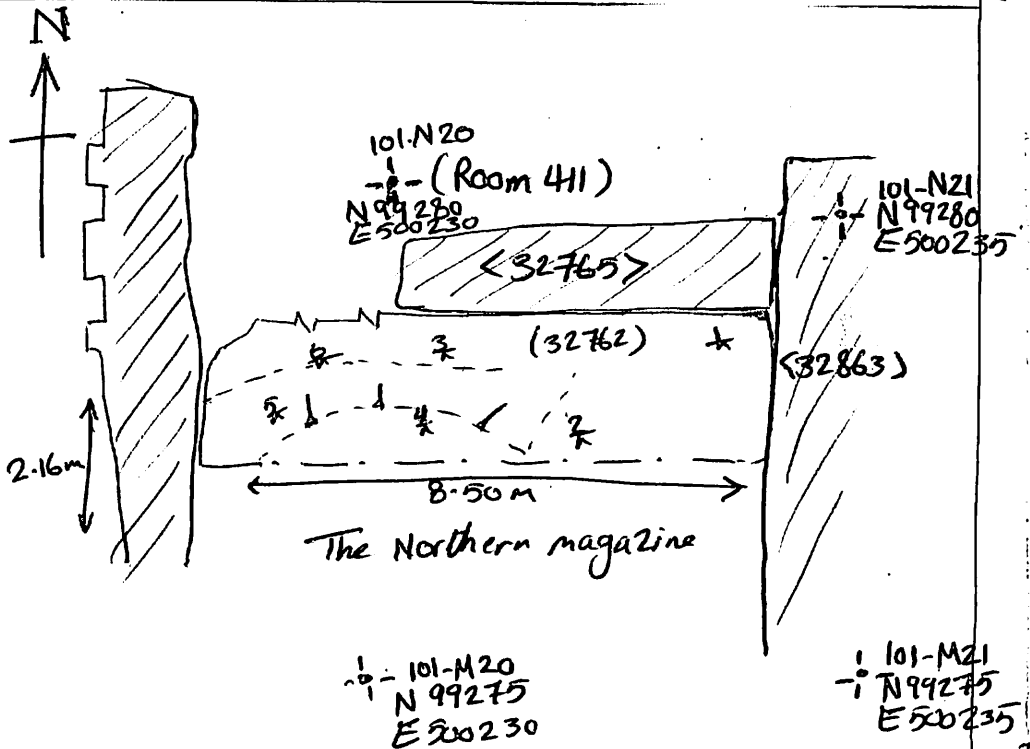 N
101-N20
(Room 411)
N 99280
E 500230
101-N21
N 99280
E 500235
<32765>
(32762)
<32863>
3
5
4
2
2.16m
8.50m
The Northern magazine
101-M20
N 99275
E 500230
101-M21
N 99275
E 500235